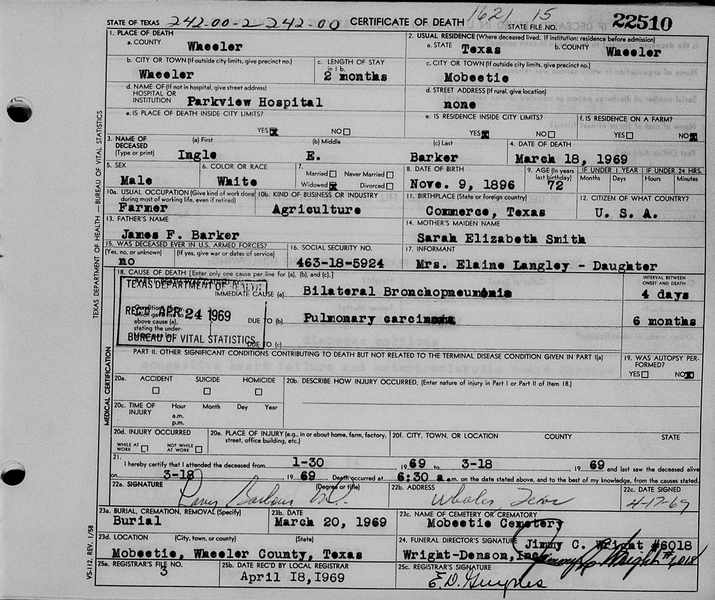 STATE OF TEXAS 242-00-2 242-00 CERTIFICATE OF DEATH 1621 15 STATE FILE NO. 22510
1. PLACE OF DEATH
a. COUNTY Wheeler
2. USUAL RESIDENCE (Where deceased lived. If institution: residence before admission)
a. STATE Texas b. COUNTY Wheeler
b. CITY OR TOWN (If outside city limits, give precinct no.) Wheeler
c. LENGTH OF STAY in 1 b. 2 months
c. CITY OR TOWN (If outside city limits, give precinct no.) Mobeetie
d. NAME OF (If not in hospital, give street address) HOSPITAL OR INSTITUTION Parkview Hospital
d. STREET ADDRESS (If rural, give location) none
e. IS PLACE OF DEATH INSIDE CITY LIMITS? YES NO
e. IS RESIDENCE INSIDE CITY LIMITS? YES NO
f. IS RESIDENCE ON A FARM? YES NO
3. NAME OF DECEASED (Type or print) (a) First Ingle (b) Middle E. (c) Last Barker
4. DATE OF DEATH March 18, 1969
5. SEX Male
6. COLOR OR RACE White
7. Married Never Married Widowed Divorced
8. DATE OF BIRTH Nove. 9, 1896
9. AGE (In years last birthday) 72
IF UNDER 1 YEAR Months Days
IF UNDER 24 HRS. Hours Minutes
10a. USUAL OCCUPATION (Give kind of work done during most of working life, even if retired) Farmer
10b. KIND OF BUSINESS OR INDUSTRY Agriculture
11. BIRTHPLACE (State or foreign country) Commerce, Texas
12. CITIZEN OF WHAT COUNTRY? U. S. A.
13. FATHER'S NAME James F. Barker
14. MOTHER'S MAIDEN NAME Sarah Elizabeth Smith
15. WAS DECEASED EVER IN U.S. ARMED FORCES? (Yes, no, or unknown) (If yes, give war or dates of service) no
16. SOCIAL SECURITY NO. 463-18-5924
17. INFORMANT Mrs. Elaine Langley - Daughter
18. CAUSE OF DEATH [Enter only one cause per line for (a), (b), and (c).]
INTERVAL BETWEEN ONSET AND DEATH
TEXAS DEPARTMENT OF
IMMEDIATE CAUSE (a) Bilateral Bronchopneumonia 4 days
REC'D APR 24 1969
above cause (a), stating the under-
DUE TO (b) Pulmonary 6 months
BUREAU OF VITAL STATISTICS
DUE TO (c)
PART II. OTHER SIGNIFICANT CONDITIONS CONTRIBUTING TO DEATH BUT NOT RELATED TO THE TERMINAL DISEASE CONDITION GIVEN IN PART I(a)
19. WAS AUTOPSY PERFORMED? YES NO
20a. ACCIDENT SUICIDE HOMICIDE
20b. DESCRIBE HOW INJURY OCCURRED. (Enter nature of injury in Part I or Part II of Item 18.)
20c. TIME OF INJURY Hour Month Day Year a.m. p.m.
20d. INJURY OCCURRED WHILE AT WORK NOT WHILE AT WORK
20e. PLACE OF INJURY (e.g., in or about home, farm, factory, street, office building, etc.)
20f. CITY, TOWN, OR LOCATION COUNTY STATE
21. I hereby certify that I attended the deceased from 1-30 1969 to 3-18 1969 and last saw the deceased alive
on 3-18 1969 Death occurred at 6:30 a.m. on the date stated above, and to the best of my knowledge, from the causes stated.
22a. SIGNATURE (Degree or title)
22b. ADDRESS Texas
22c. DATE SIGNED 4-17-69
23a. BURIAL, CREMATION, REMOVAL (Specify) Burial
23b. DATE March 20, 1969
23c. NAME OF CEMETERY OR CREMATORY Mobeetie Cemetery
23d. LOCATION (City, town, or county) (State) Mobeetie, Wheeler County, Texas
24. FUNERAL DIRECTOR'S SIGNATURE Jimmy C. Wright #6018
Wright-Denson, Inc. Jimmy C. Wright #6018
25a. REGISTRAR'S FILE NO. 3
25b. DATE REC'D BY LOCAL REGISTRAR April 18, 1969
25c. REGISTRAR'S SIGNATURE
TEXAS DEPARTMENT OF HEALTH—BUREAU OF VITAL STATISTICS
MEDICAL CERTIFICATION
VS-112, REV. 1/58